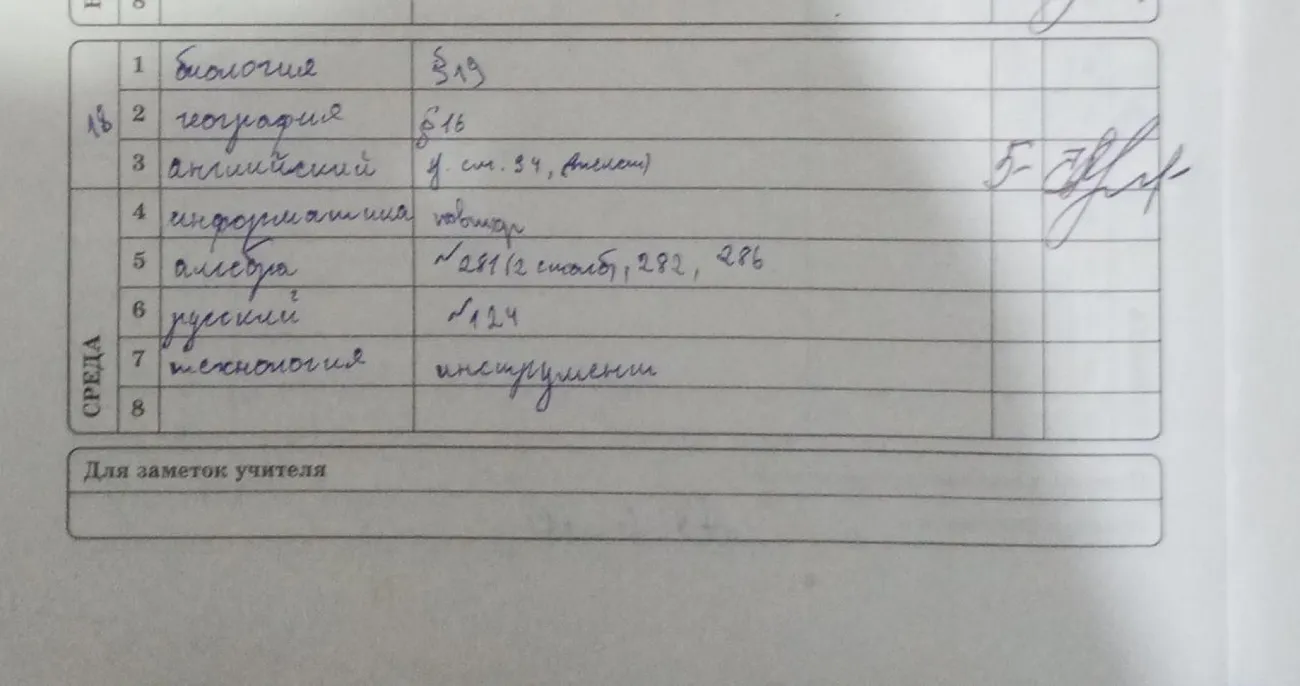 8
18
СРЕДА
1 биология §19
2 география §16
3 английский у. стр. 94, 5-
4 информатика повтор
5 алгебра №281(2 столб), 282, 286
6 русский №124
7 технология инструмент
8
Для заметок учителя